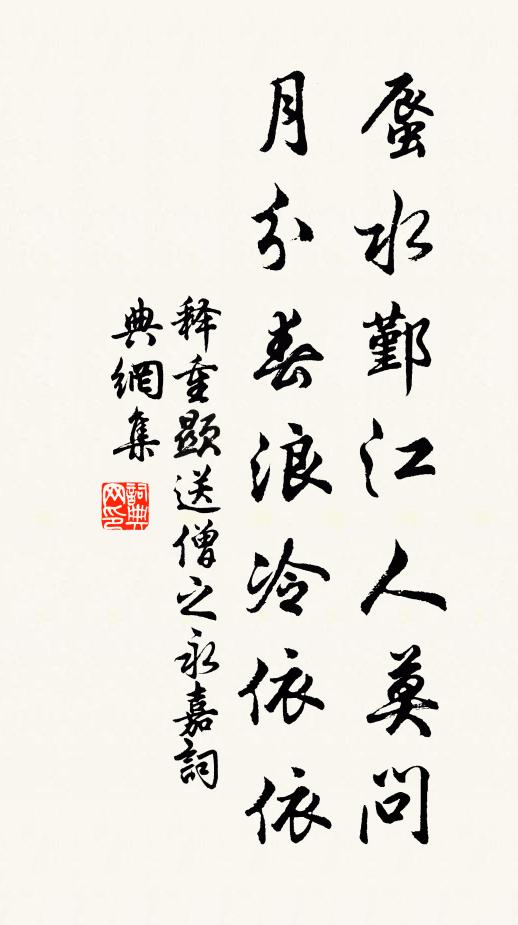 蜃水鄞江人莫问
月分春浪冷依依
释重顯送僧之永嘉詞
典網集
詞典网印